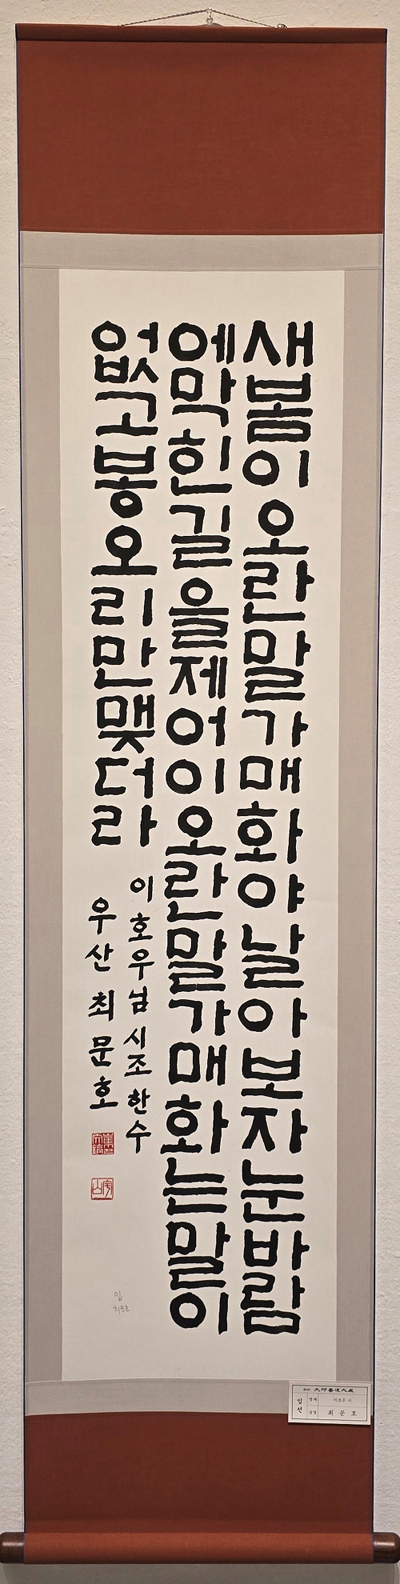 새봄이오란말가매화야날아보자눈바람
에막힌길을제어이오란말가매화는말이
없고봉오리만맺더라
이호우님 시조 한수
우산 최문호
입선
최문호